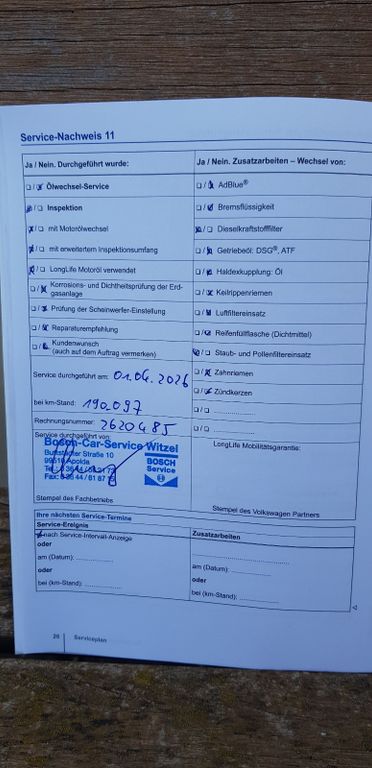 Service-Nachweis 11
Ja / Nein. Durchgeführt wurde:
☐ / ☒ Ölwechsel-Service
☒ / ☐ Inspektion
☒ / ☐ mit Motorölwechsel
☒ / ☐ mit erweitertem Inspektionsumfang
☒ / ☐ LongLife Motoröl verwendet
☐ / ☒ Korrosions- und Dichtheitsprüfung der Erd-
gasanlage
☐ / ☒ Prüfung der Scheinwerfer-Einstellung
☐ / ☒ Reparaturempfehlung
☐ / ☒ Kundenwunsch
(auch auf dem Auftrag vermerken)
Service durchgeführt am: 01.06.2026
bei km-Stand: 190.097
Rechnungsnummer: 2620485
Service durchgeführt von:
Bosch-Car-Service Witzel
Buttstädter Straße 10
99510 Apolda
BOSCH
Service
Stempel des Fachbetriebs
Ja / Nein. Zusatzarbeiten – Wechsel von:
☐ / ☒ AdBlue®
☐ / ☒ Bremsflüssigkeit
☒ / ☐ Dieselkraftstofffilter
☐ / ☒ Getriebeöl: DSG®, ATF
☐ / ☒ Haldexkupplung: Öl
☐ / ☒ Keilrippenriemen
☐ / ☒ Luftfiltereinsatz
☐ / ☒ Reifenfüllflasche (Dichtmittel)
☒ / ☐ Staub- und Pollenfiltereinsatz
☐ / ☒ Zahnriemen
☐ / ☒ Zündkerzen
☐ / ☐ ....................
☐ / ☐ ....................
LongLife Mobilitätsgarantie:
Stempel des Volkswagen Partners
Ihre nächsten Service-Termine
Service-Ereignis
☒ nach Service-Intervall-Anzeige
oder
am (Datum): ....................
oder
bei (km-Stand): ....................
Zusatzarbeiten
..............................
am (Datum): ....................
oder
bei (km-Stand): ....................
26 Serviceplan